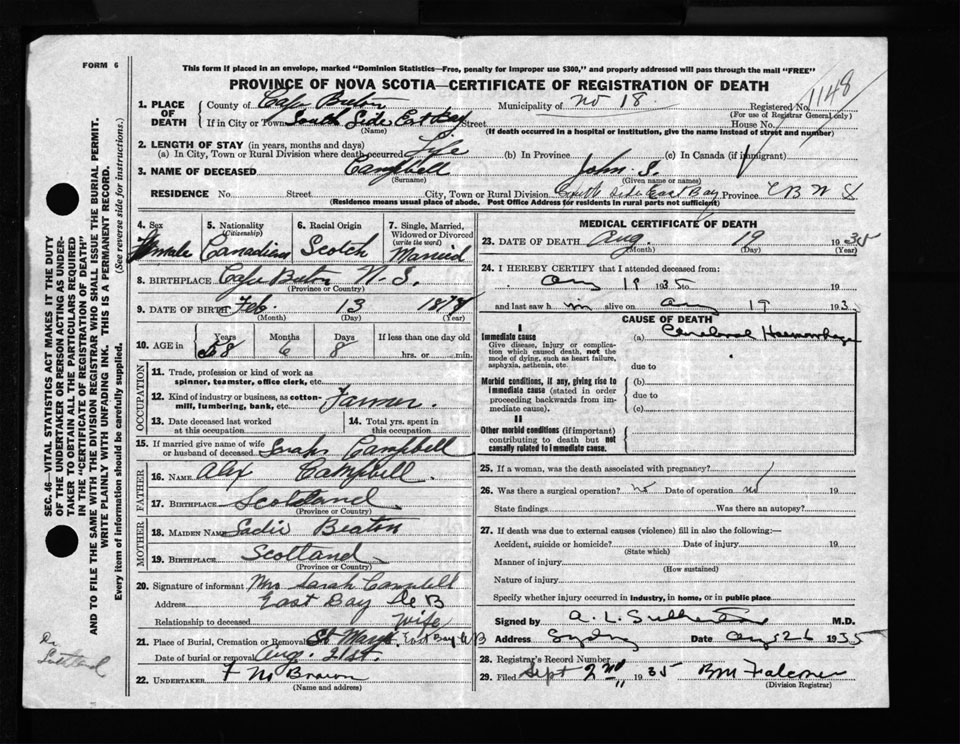 FORM 6
This form if placed in an envelope, marked "Dominion Statistics—Free, penalty for improper use $300," and properly addressed will pass through the mail "FREE"
PROVINCE OF NOVA SCOTIA—CERTIFICATE OF REGISTRATION OF DEATH
1148
1. PLACE OF DEATH
County of Cape Breton Municipality of No 18 Registered No.
(For use of Registrar General only)
If in City or Town South Side East Bay Street House No.
(Name) (If death occurred in a hospital or institution, give the name instead of street and number)
2. LENGTH OF STAY (in years, months and days)
(a) In City, Town or Rural Division where death occurred Life (b) In Province (c) In Canada (if immigrant)
3. NAME OF DECEASED Campbell John S.
(Surname) (Given name or names)
RESIDENCE No. Street City, Town or Rural Division South Side East Bay Province C B N S
(Residence means usual place of abode. Post Office Address for residents in rural parts not sufficient)
4. Sex male
5. Nationality (Citizenship) Canadian
6. Racial Origin Scotch
7. Single, Married, Widowed or Divorced (write the word) Married
8. BIRTHPLACE Cape Breton N. S.
(Province or Country)
9. DATE OF BIRTH Feb. 13 187
(Month) (Day) (Year)
10. AGE in Years 58 Months 6 Days 8 If less than one day old
hrs. or min.
OCCUPATION
11. Trade, profession or kind of work as spinner, teamster, office clerk, etc.
12. Kind of industry or business, as cotton-mill, lumbering, bank, etc. Farmer.
13. Date deceased last worked at this occupation
14. Total yrs. spent in this occupation
15. If married give name of wife or husband of deceased Sarah Campbell
FATHER
16. NAME Alex Campbell
17. BIRTHPLACE Scotland
(Province or Country)
MOTHER
18. MAIDEN NAME Sadie Beaton
19. BIRTHPLACE Scotland
(Province or Country)
20. Signature of informant Mrs Sarah Campbell
Address East Bay C B
Relationship to deceased wife
21. Place of Burial, Cremation or Removal St Marys East Bay CB
Date of burial or removal Aug. 21st.
22. UNDERTAKER F Brown
(Name and address)
MEDICAL CERTIFICATE OF DEATH
23. DATE OF DEATH Aug. 19 1935
(Month) (Day) (Year)
24. I HEREBY CERTIFY that I attended deceased from:
Aug 19 193 5 to
and last saw h im alive on Aug 19 193
CAUSE OF DEATH
I
Immediate cause
Give disease, injury or complication which caused death, not the mode of dying, such as heart failure, asphyxia, asthenia, etc.
(a) Cerebral Haemorrhage
due to
Morbid conditions, if any, giving rise to immediate cause (stated in order proceeding backwards from immediate cause).
(b)
due to
(c)
II
Other morbid conditions (if important) contributing to death but not causally related to immediate cause.
25. If a woman, was the death associated with pregnancy?
26. Was there a surgical operation? no Date of operation no 19
State findings Was there an autopsy?
27. If death was due to external causes (violence) fill in also the following:—
Accident, suicide or homicide? Date of injury 19
(State which)
Manner of injury
(How sustained)
Nature of injury
Specify whether injury occurred in industry, in home, or in public place
Signed by A. L. Sutherland M.D.
Address Sydney Date Aug 26 1935
28. Registrar's Record Number
29. Filed Sept 2nd 1935 Falconer
(Division Registrar)
SEC. 46—VITAL STATISTICS ACT MAKES IT THE DUTY
OF THE UNDERTAKER OR PERSON ACTING AS UNDER-
TAKER TO OBTAIN ALL THE PARTICULARS REQUIRED
IN THE "CERTIFICATE OF REGISTRATION OF DEATH"
AND TO FILE THE SAME WITH THE DIVISION REGISTRAR WHO SHALL ISSUE THE BURIAL PERMIT.
WRITE PLAINLY WITH UNFADING INK. THIS IS A PERMANENT RECORD.
Every item of information should be carefully supplied. (See reverse side for instructions.)
Scotland